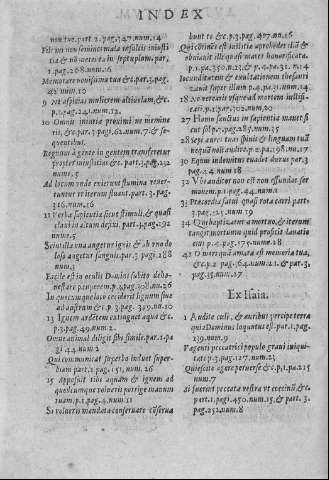 INDEX
non tue. part. 2. pag. 347. num. 14
Fili mi non semines mala in sulcis iniusti
tiæ & nō metes ea in septuplum. par.
1. pag. 208. num. 6
Memorare novissima tua &c. par. 3. pag.
42 num. 10
9 Ne aspicias mulierem alienam, &c.
p. 1. pag. 241. num. 13
10 Omnis iniuria proximi ne memine
ris, &c par. 3. pagi. 62. num. 7. & se
quentibus.
Regnum à gente in gentem transferetur
propter iniustitias &c. part. 3. pag. 232
num. 5
Ad locum unde exeunt flumina rever-
tuntur vt iterum fluant. part. 3. pag.
316. num. 16
21 Verba sapientia sicut stimuli, & quasi
clavi in altum defixi. part. 4. pag. 192
num. 5
Scintilla vna augetur ignis & ab vno do
loso augetur sanguis. par. 3 pagi. 288
num. 3
Facile est in oculis Domini subito hone-
stare pauperem. p. 1. pag. 308. nu. 26
In quocumque loco ceciderit lignum siue
ad austrum & c. p. 3. pag. 319. nu. 10
13 Ignem ardētem extinguet aqua & c.
p. 3. pag. 49. num. 2
Omne animal diligit sibi simile. par. 1 pa
gi. 44. num. 2
Qui communicat superbo induet super
biam part. 1. pag. 151, num. 26
15 Apposuit tibi aquam & ignem ad
quodcumque volueris porrige manum
tuam. p. 1. pag. 4. num. 11
Si volueris mandata conservare cōserua
bunt te & c. p. 3. pag. 407. nu. 16
Qui timens est iniustia aprehendet illā &
obuiabit illi quasi mater honorificata.
p. 1. pa. 350. n. 23. & p. 4. pa. 31. n. 14
Iucunditatem & exultationem thesauri
zauit super illum p. 4. pag. 41. num. 14
18 Ne verearis vsque ad mortem iustifi-
cari. p. 1. pag. 302. num. 20
27 Homo sanctus in sapientia manet si
cut sol p. 1. pag. 287. num. 35
28 Sepi aures tuas spinis & linguam tuā
nequā noli audire. p. 2. pa. 198. nu. 17
30 Equus indomitus euadet durus par. 3
pag. 24. num 18
32 Vbi auditus non est non effundas ser
monem. p. 1. pag. 44. num. 1
33 Præcordia fatui quasi rota carri part.
3. pag. 125. num. 19
34 Qui baptizatur à mortuo, & iterum
tangit mortuum quid proficit lauatio
eius p. 4. pag. 175. nume. 18
42 O mors quam amara est memoria tua,
&c p. 2 pag. 564. num. 21. & par. 3.
pag. 35. num. 17
Ex Isaia.
1 Audite cœli, & auribus percipe terra
quia Dominus loquutus est. par. 1. pag.
139. num. 9
Væ genti peccatrici populo graui iniqui-
tati, p. 3. pag. 127. num. 23
Quiescite agere peruerse & c. p. 1. pa. 215
num. 7
Si fuerint peccata vestra vt coccinū & c.
part. 1. pagi. 450. num. 15, & par. 3.
pag. 252. num. 8